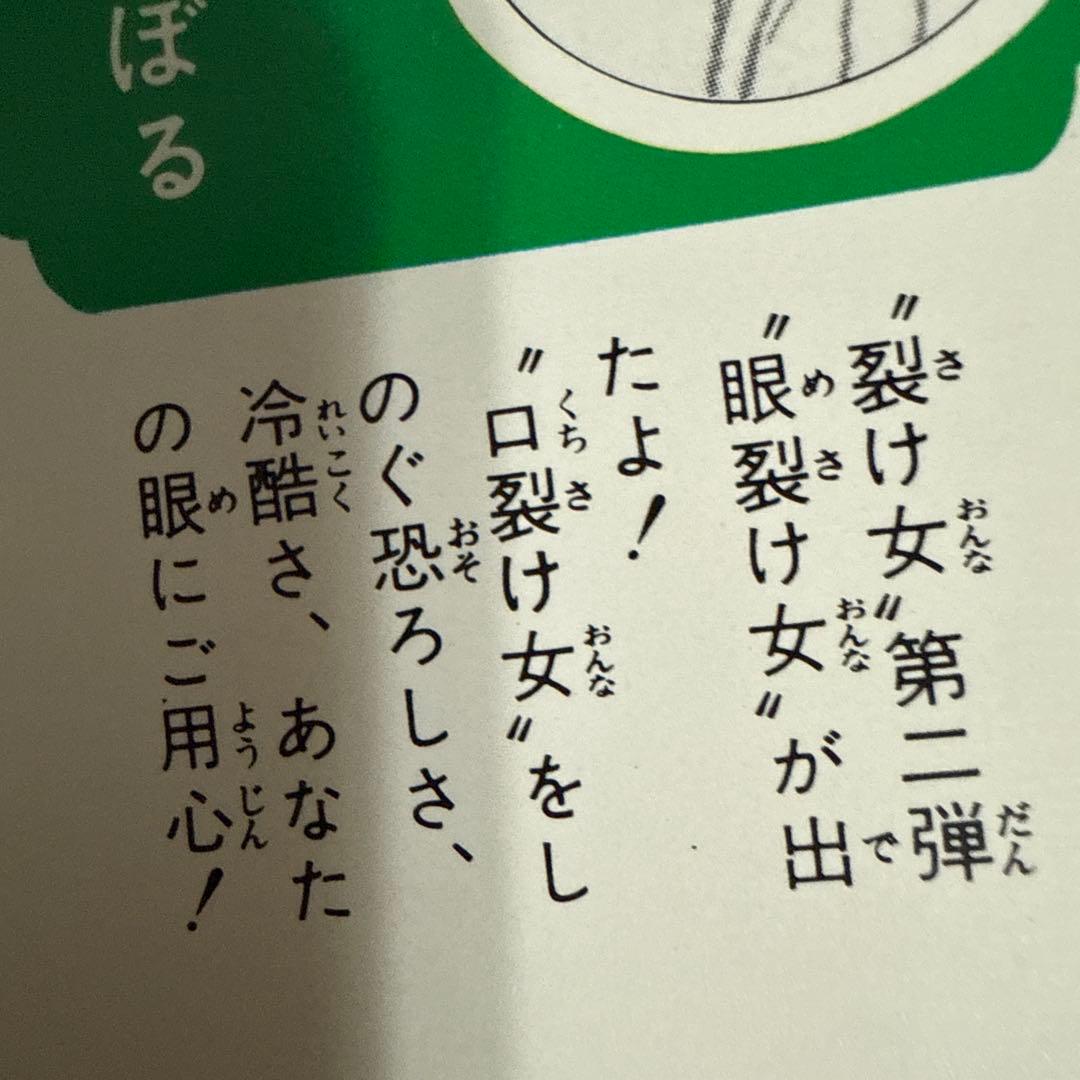 ぼる
〝裂け女〟第二弾
〝眼裂け女〟が出
たよ！
〝口裂け女〟をし
のぐ恐ろしさ、
冷酷さ、あなた
の眼にご用心！